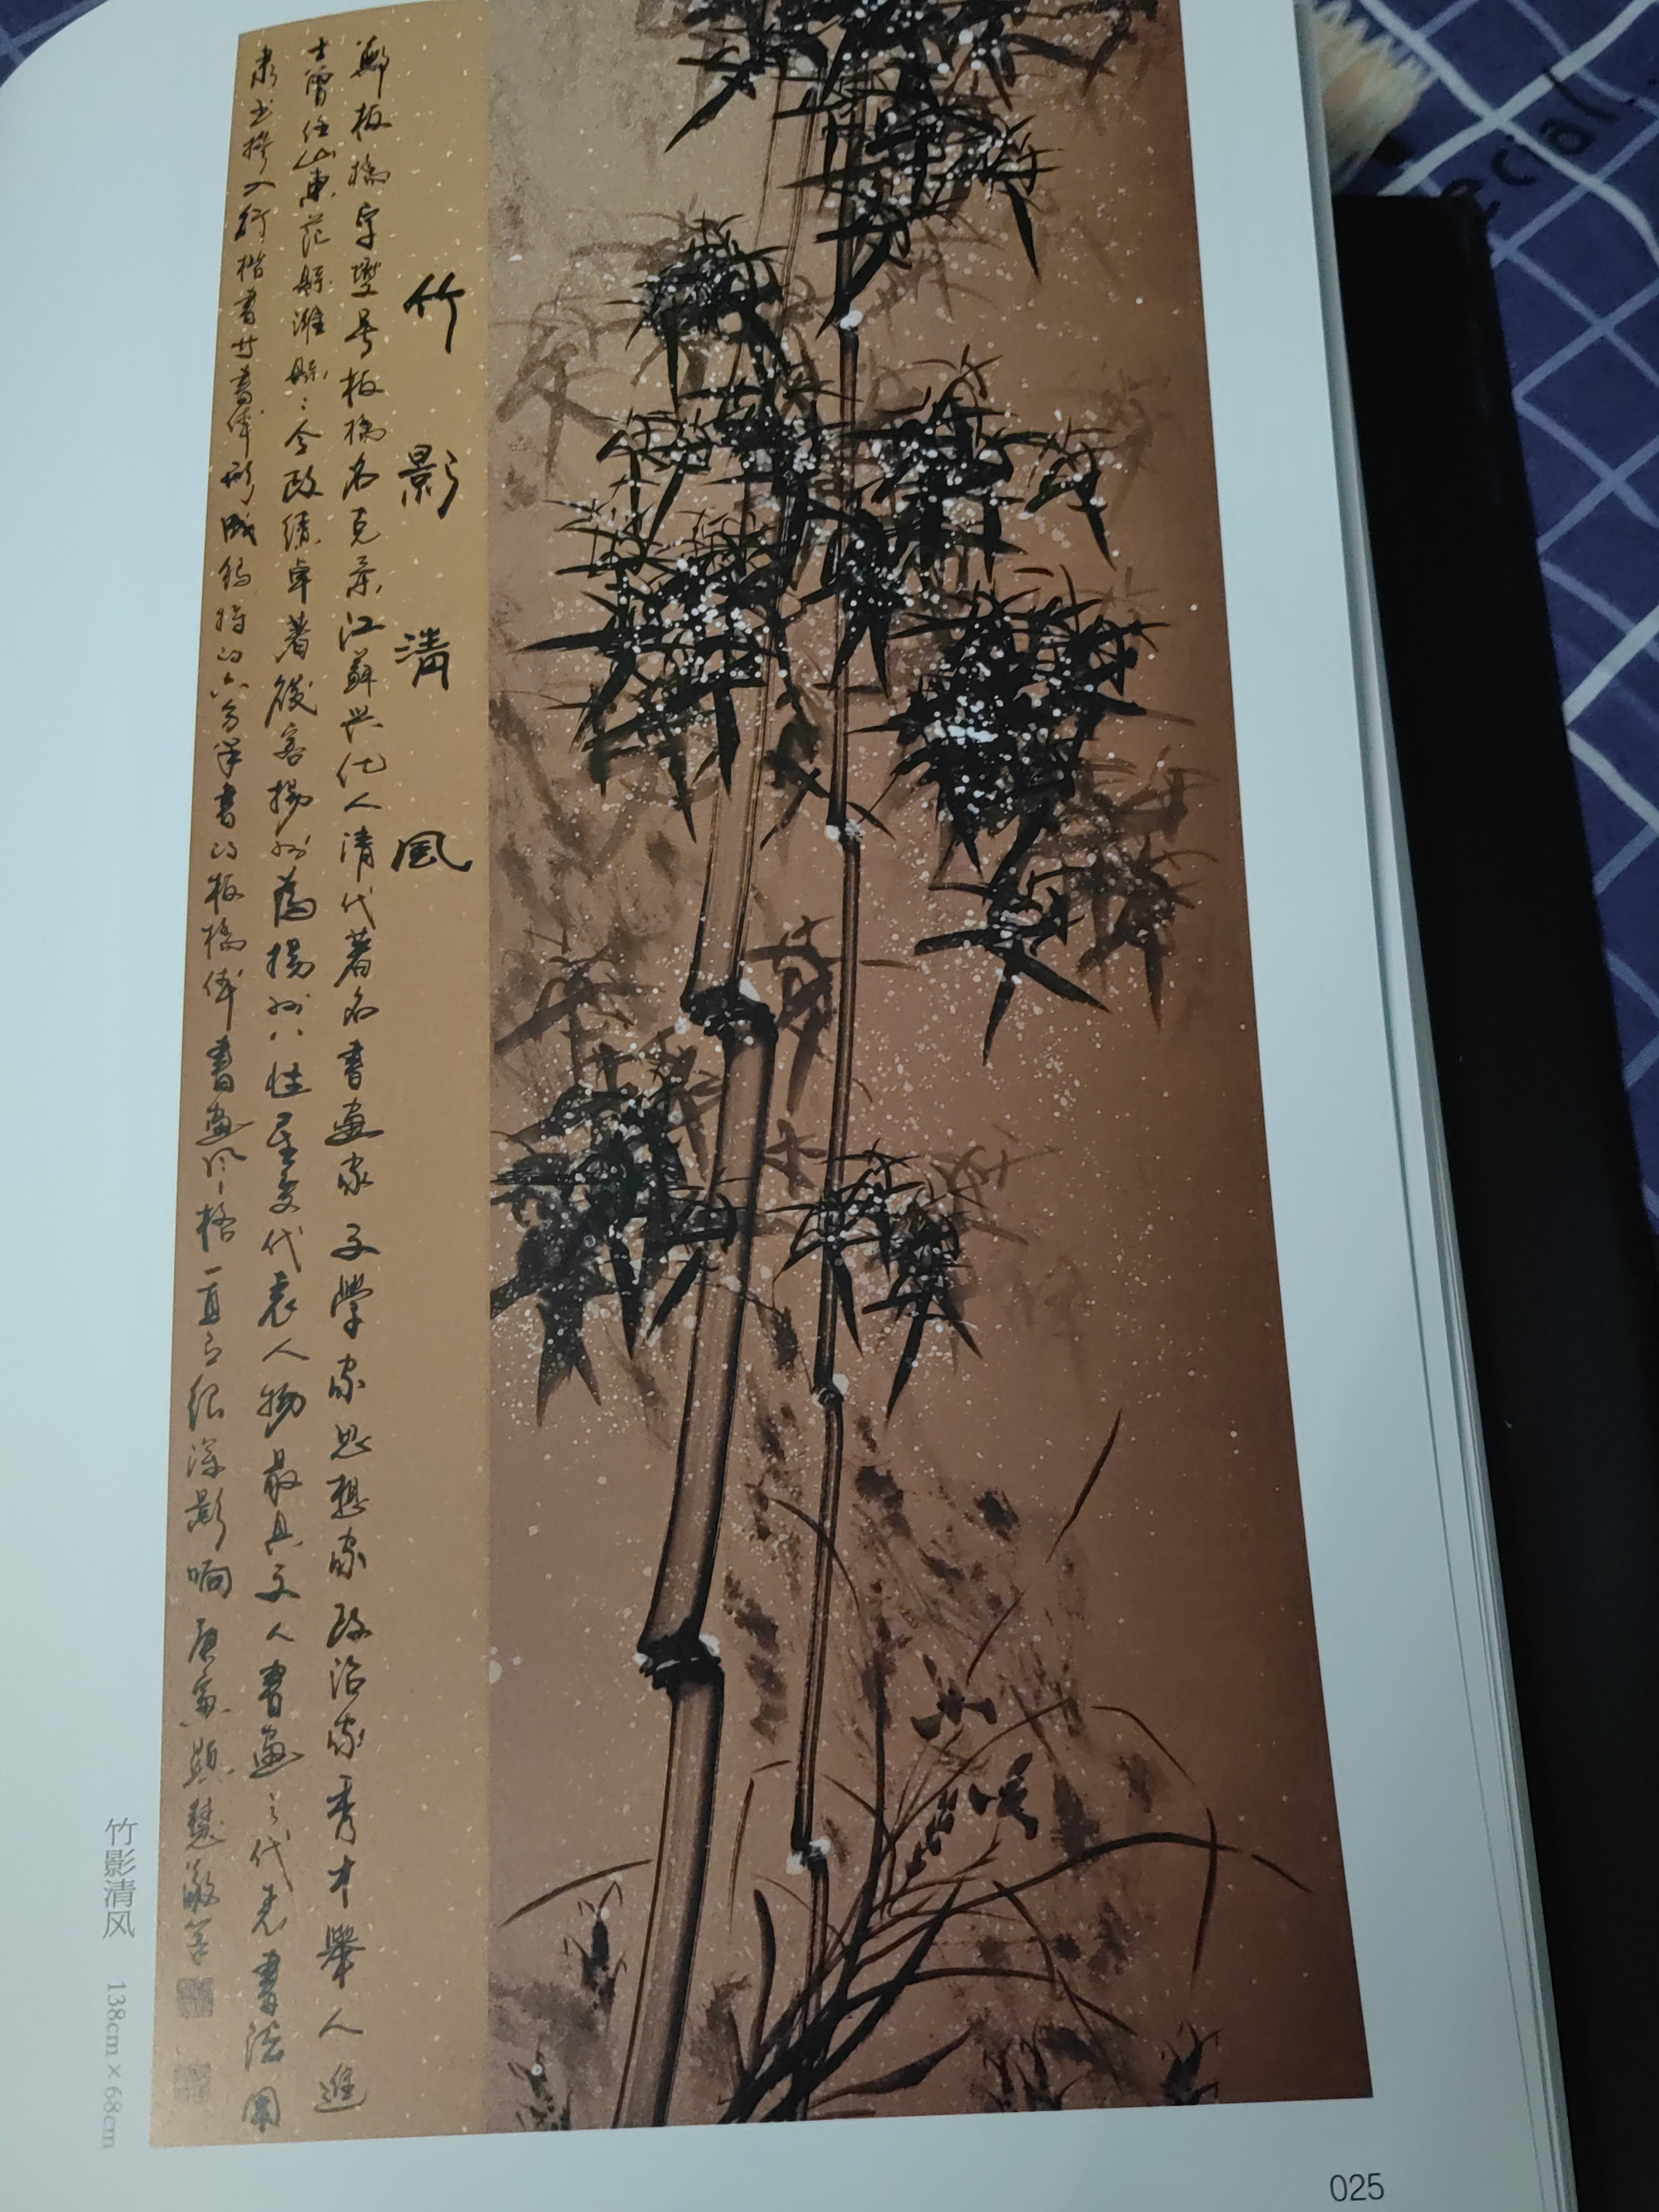 竹影清風
鄭板橋字燮号板橋名克柔江蘇兴化人清代著名書畫家文學家思想家政治家秀才舉人進
士曾任山東范縣濰縣令政績卓著後客揚州為揚州八怪重要代表人物最具文人書畫之代表書法用
隶书摻入行楷書书体形成独特的六分半書的板橋体書畫风格一直有很深影响
竹影清风 138cm×68cm
025